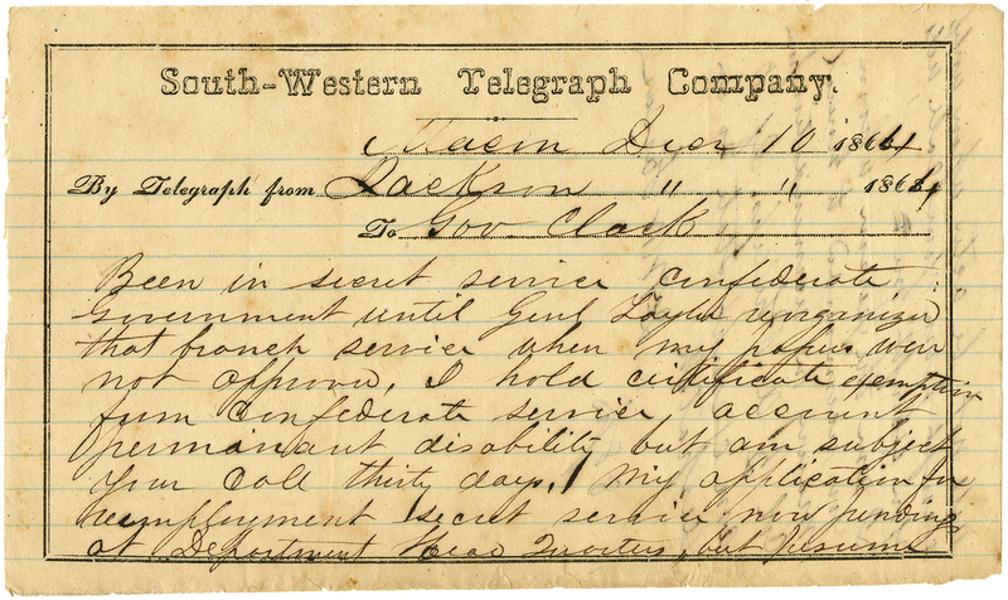 South-Western Telegraph Company.
Macon Decr 10 1864
By Telegraph from Jackson " " 1864
To Gov. Clark
Been in secret service Confederate
Government until Genl Taylor reorganized
that branch service when my papers were
not approved, I hold certificate exemption
from Confederate service, account
permanant disability but am subject
your Call thirty days. My application for
reemployment secret service now pending
at Department Head Quarters, but presume